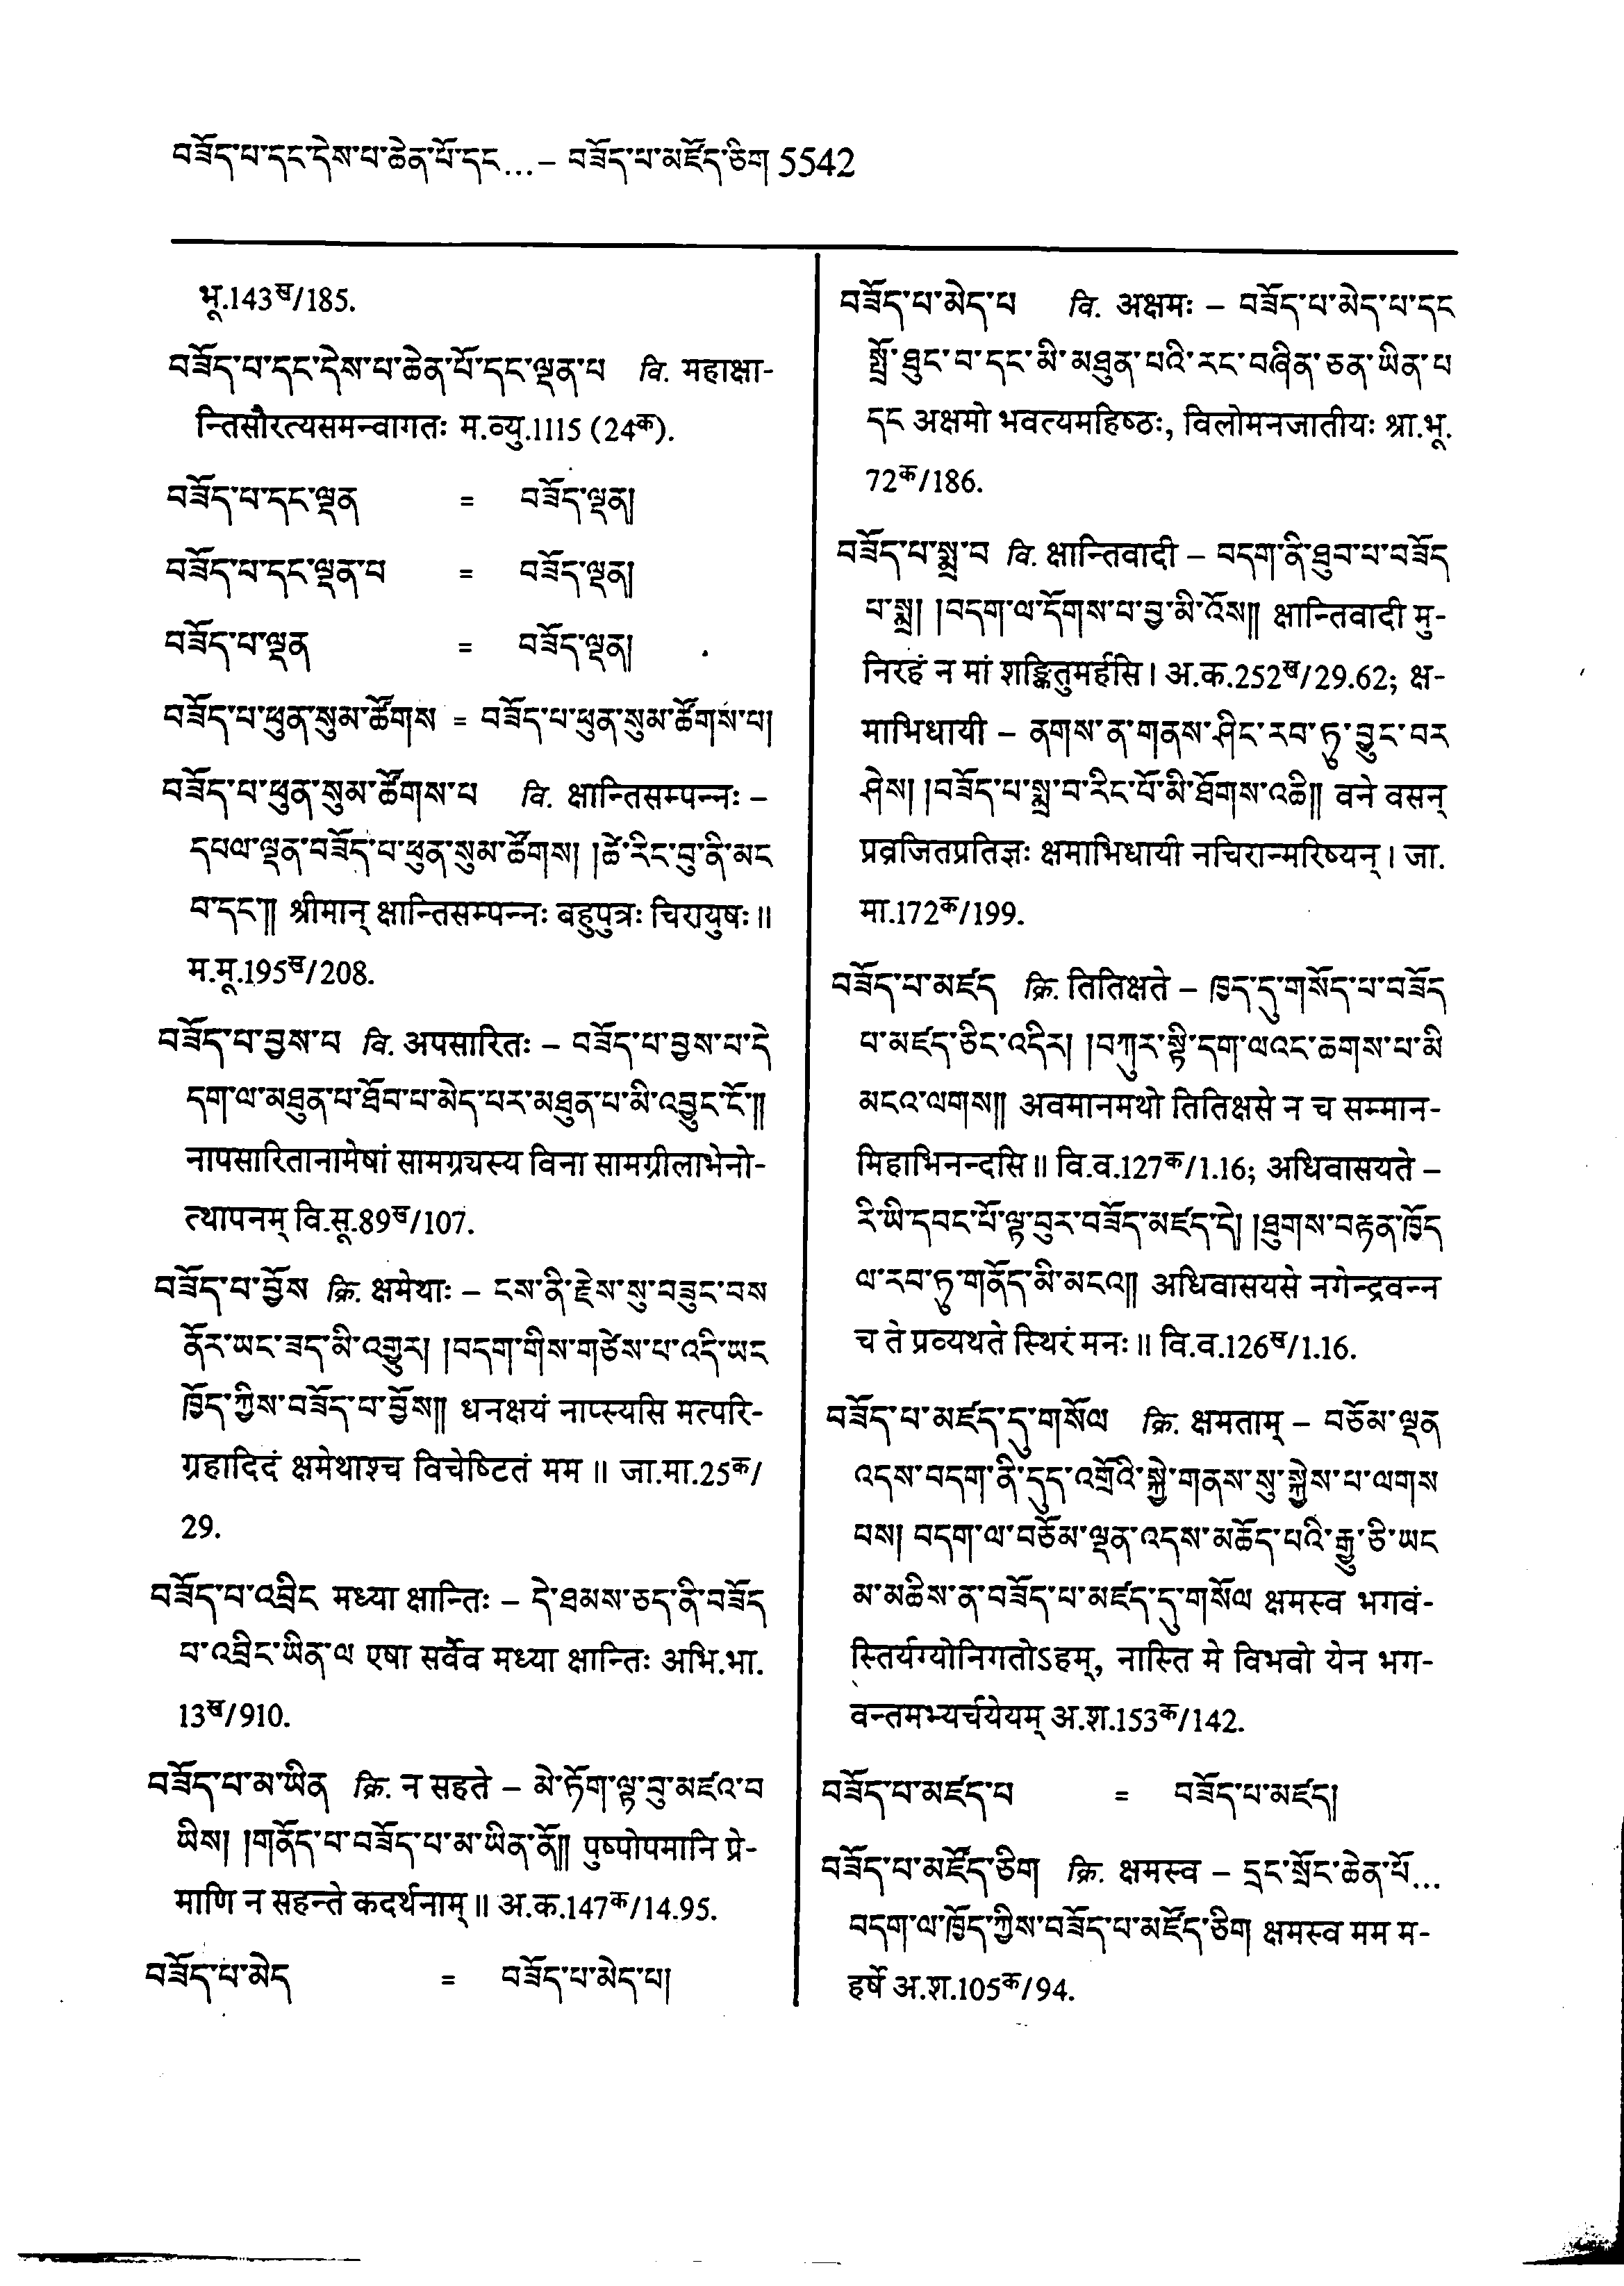 བཟོད་པ་དང་དེས་པ་ཆེན་པོ་དང...– བཟོད་པ་མཛོད་ཅིག 5542
भू.143ख/185.
བཟོད་པ་དང་དེས་པ་ཆེན་པོ་དང་ལྡན་པ वि. महाक्षा-
न्तिसौरत्यसमन्वागतः म.व्यु.1115 (24क).
བཟོད་པ་དང་ལྡན = བཟོད་ལྡན།
བཟོད་པ་དང་ལྡན་པ = བཟོད་ལྡན།
བཟོད་པ་ལྡན = བཟོད་ལྡན།
བཟོད་པ་ཕུན་སུམ་ཚོགས = བཟོད་པ་ཕུན་སུམ་ཚོགས་པ།
བཟོད་པ་ཕུན་སུམ་ཚོགས་པ वि. क्षान्तिसम्पन्नः –
དཔལ་ལྡན་བཟོད་པ་ཕུན་སུམ་ཚོགས། །ཚེ་རིང་བུ་ནི་མང
བ་དང་༎ श्रीमान् क्षान्तिसम्पन्नः बहुपुत्रः चिरायुषः ॥
म.मू.195ख/208.
བཟོད་པ་བྱས་པ वि. अपसारितः – བཟོད་པ་བྱས་པ་དེ
དག་ལ་མཐུན་པ་ཐོབ་པ་མེད་པར་མཐུན་པ་མི་འབྱུང་ངོ་༎
नापसारितानामेषां सामग्र्यस्य विना सामग्रीलाभेनो-
त्थापनम् वि.सू.89ख/107.
བཟོད་པ་བྱོས क्रि. क्षमेथाः – ངས་ནི་རྗེས་སུ་བཟུང་བས
ནོར་ཡང་ཟད་མི་འགྱུར། །བདག་གིས་གཙེས་པ་འདི་ཡང
ཁྱོད་ཀྱིས་བཟོད་པ་བྱོས༎ धनक्षयं नाप्स्यसि मत्परि-
ग्रहादिदं क्षमेथाश्च विचेष्टितं मम ॥ जा.मा.25क/
29.
བཟོད་པ་འབྲིང मध्या क्षान्तिः – དེ་ཐམས་ཅད་ནི་བཟོད
པ་འབྲིང་ཡིན་ལ एषा सर्वैव मध्या क्षान्तिः अभि.भा.
13ख/910.
བཟོད་པ་མ་ཡིན क्रि. न सहते – མེ་ཏོག་ལྟ་བུ་མཛའ་བ
ཡིས། །གནོད་པ་བཟོད་པ་མ་ཡིན་ནོ༎ पुष्पोपमानि प्रे-
माणि न सहन्ते कदर्थनाम् ॥ अ.क.147क/14.95.
བཟོད་པ་མེད = བཟོད་པ་མེད་པ།
བཟོད་པ་མེད་པ वि. अक्षमः – བཟོད་པ་མེད་པ་དང
སྤྲོ་ཐུང་བ་དང་མི་མཐུན་པའི་རང་བཞིན་ཅན་ཡིན་པ
དང अक्षमो भवत्यमहिष्ठः, विलोमनजातीयः श्रा.भू.
72क/186.
བཟོད་པ་སྨྲ་བ वि. क्षान्तिवादी – བདག་ནི་ཐུབ་པ་བཟོད
པ་སྨྲ། །བདག་ལ་དོགས་པ་བྱ་མི་འོས༎ क्षान्तिवादी मु-
निरहं न मां शङ्कितुमर्हसि । अ.क.252ख/29.62; क्ष-
माभिधायी – ནགས་ན་གནས་ཤིང་རབ་ཏུ་བྱུང་བར
ཤེས། །བཟོད་པ་སྨྲ་བ་རིང་པོ་མི་ཐོགས་འཆི༎ वने वसन्
प्रव्रजितप्रतिज्ञः क्षमाभिधायी नचिरान्मरिष्यन् । जा.
मा.172क/199.
བཟོད་པ་མཛད क्रि. तितिक्षते – ཁྱད་དུ་གསོད་པ་བཟོད
པ་མཛད་ཅིང་འདིར། །བཀུར་སྟི་དག་ལའང་ཆགས་པ་མི
མངའ་ལགས༎ अवमानमथो तितिक्षसे न च सम्मान-
मिहाभिनन्दसि ॥ वि.व.127क/1.16; अधिवासयते –
རི་ཡི་དབང་པོ་ལྟ་བུར་བཟོད་མཛད་དེ། །ཐུགས་བརྟན་ཁྱོད
ལ་རབ་ཏུ་གནོད་མི་མངའ༎ अधिवासयसे नगेन्द्रवन्न
च ते प्रव्यथते स्थिरं मनः ॥ वि.व.126ख/1.16.
བཟོད་པ་མཛད་དུ་གསོལ क्रि. क्षमताम् – བཅོམ་ལྡན
འདས་བདག་ནི་དུད་འགྲོའི་སྐྱེ་གནས་སུ་སྐྱེས་པ་ལགས
པས། བདག་ལ་བཅོམ་ལྡན་འདས་མཆོད་པའི་རྒྱུ་ཅི་ཡང
མ་མཆིས་ན་བཟོད་པ་མཛད་དུ་གསོལ क्षमस्व भगवं-
स्तिर्यग्योनिगतोऽहम्, नास्ति मे विभवो येन भग-
वन्तमभ्यर्चयेयम् अ.श.153क/142.
བཟོད་པ་མཛད་པ = བཟོད་པ་མཛད།
བཟོད་པ་མཛོད་ཅིག क्रि. क्षमस्व – དྲང་སྲོང་ཆེན་པོ...
བདག་ལ་ཁྱོད་ཀྱིས་བཟོད་པ་མཛོད་ཅིག क्षमस्व मम म-
हर्षे अ.श.105क/94.